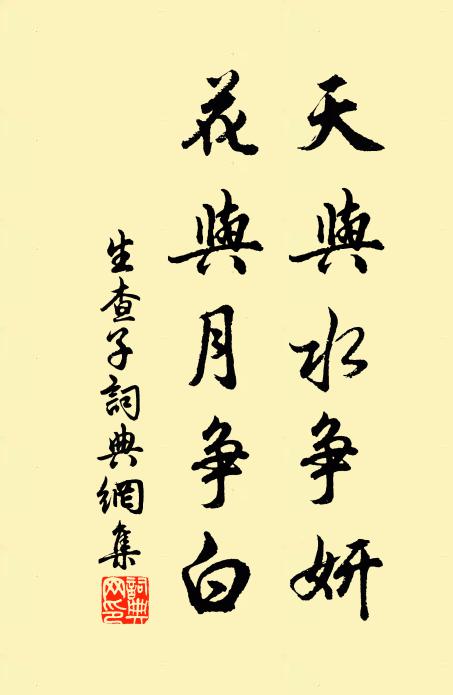 天與水争妍
花與月争白
生查子詞典網集
詞典